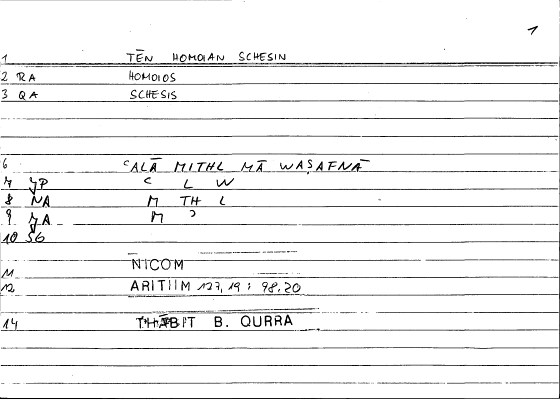 1
1 TĒN HOMOIAN SCHESIN
2 RA HOMOIOS
3 QA SCHESIS
6 ʿALĀ MITHL MĀ WAṢAFNĀ
7 JP ʿ L W
8 NA M TH L
9 JA M ʾ
10 SG
11 NICOM
12 ARITIIM 127,19 : 98.20
14 THĀBIT B. QURRA